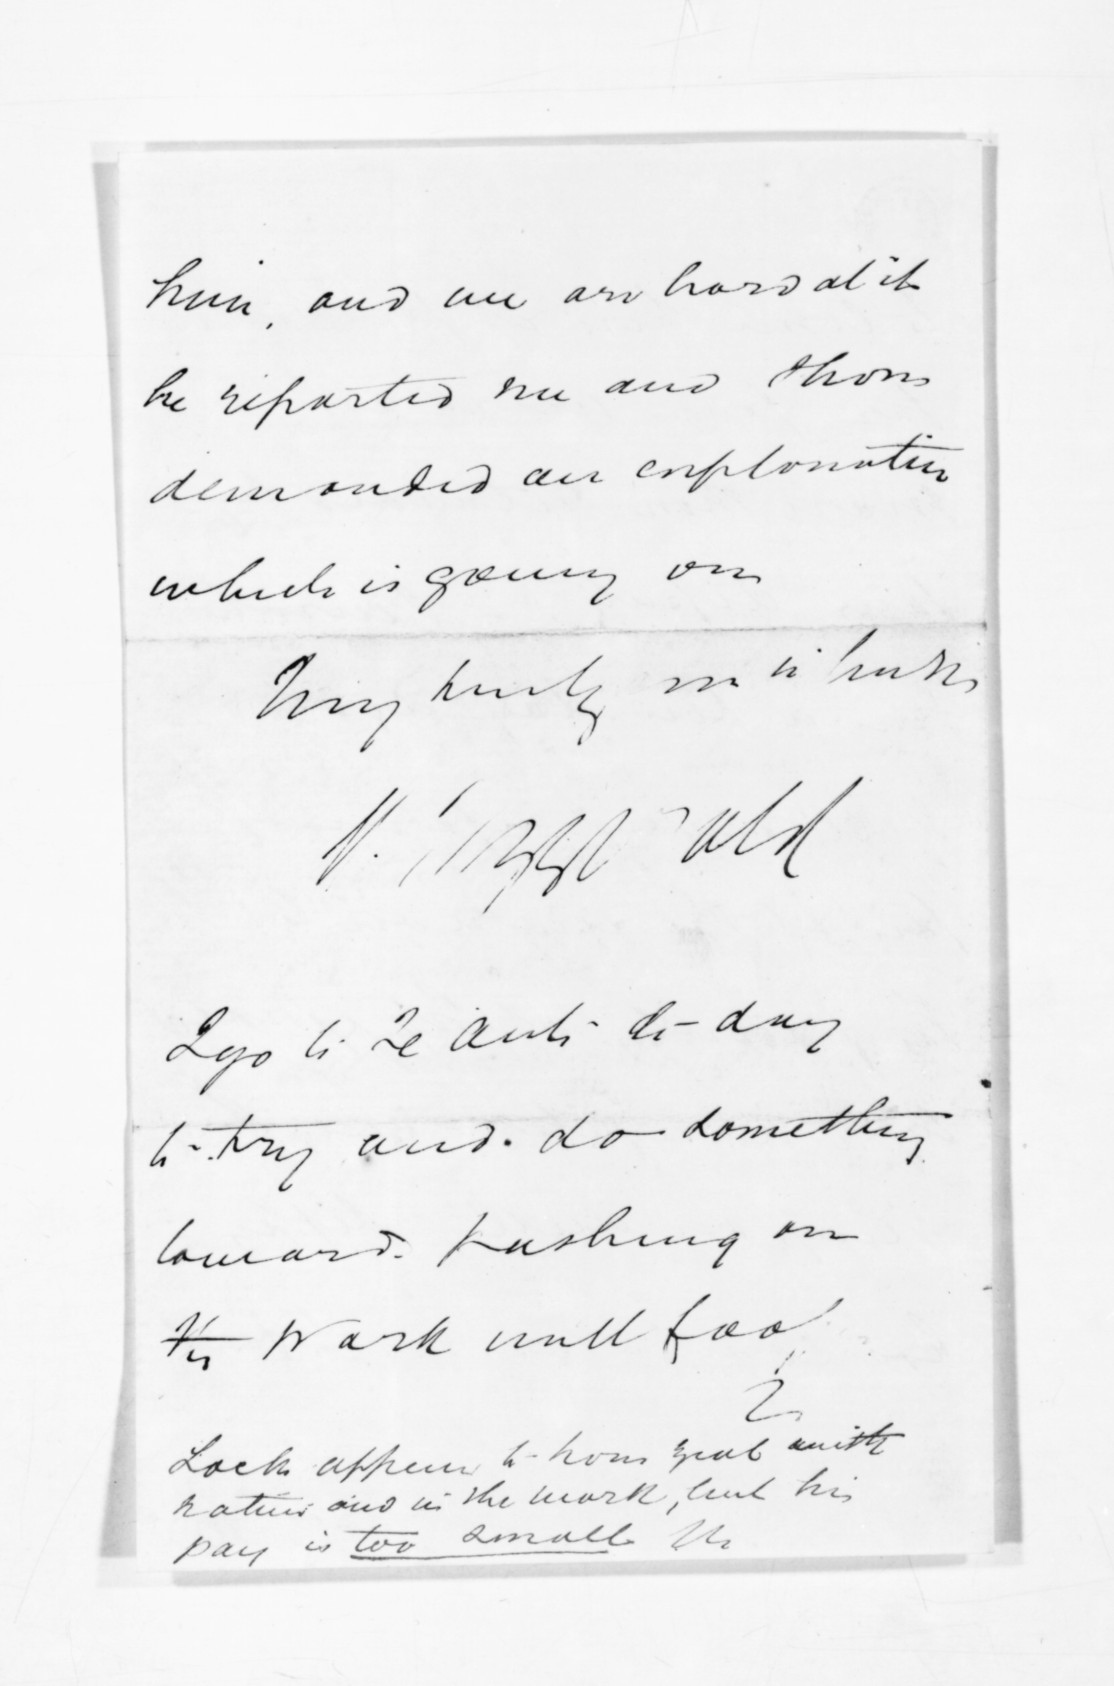 him, and we are hard at it
he reported me and I have
demanded an explanation
which is going on
Very truly in haste
Fitzgerald
I go to Te Aute to-day
to try and do something
toward pushing on
the work until food
Lock appears to have great with
natives and in the work, but his
pay is too small